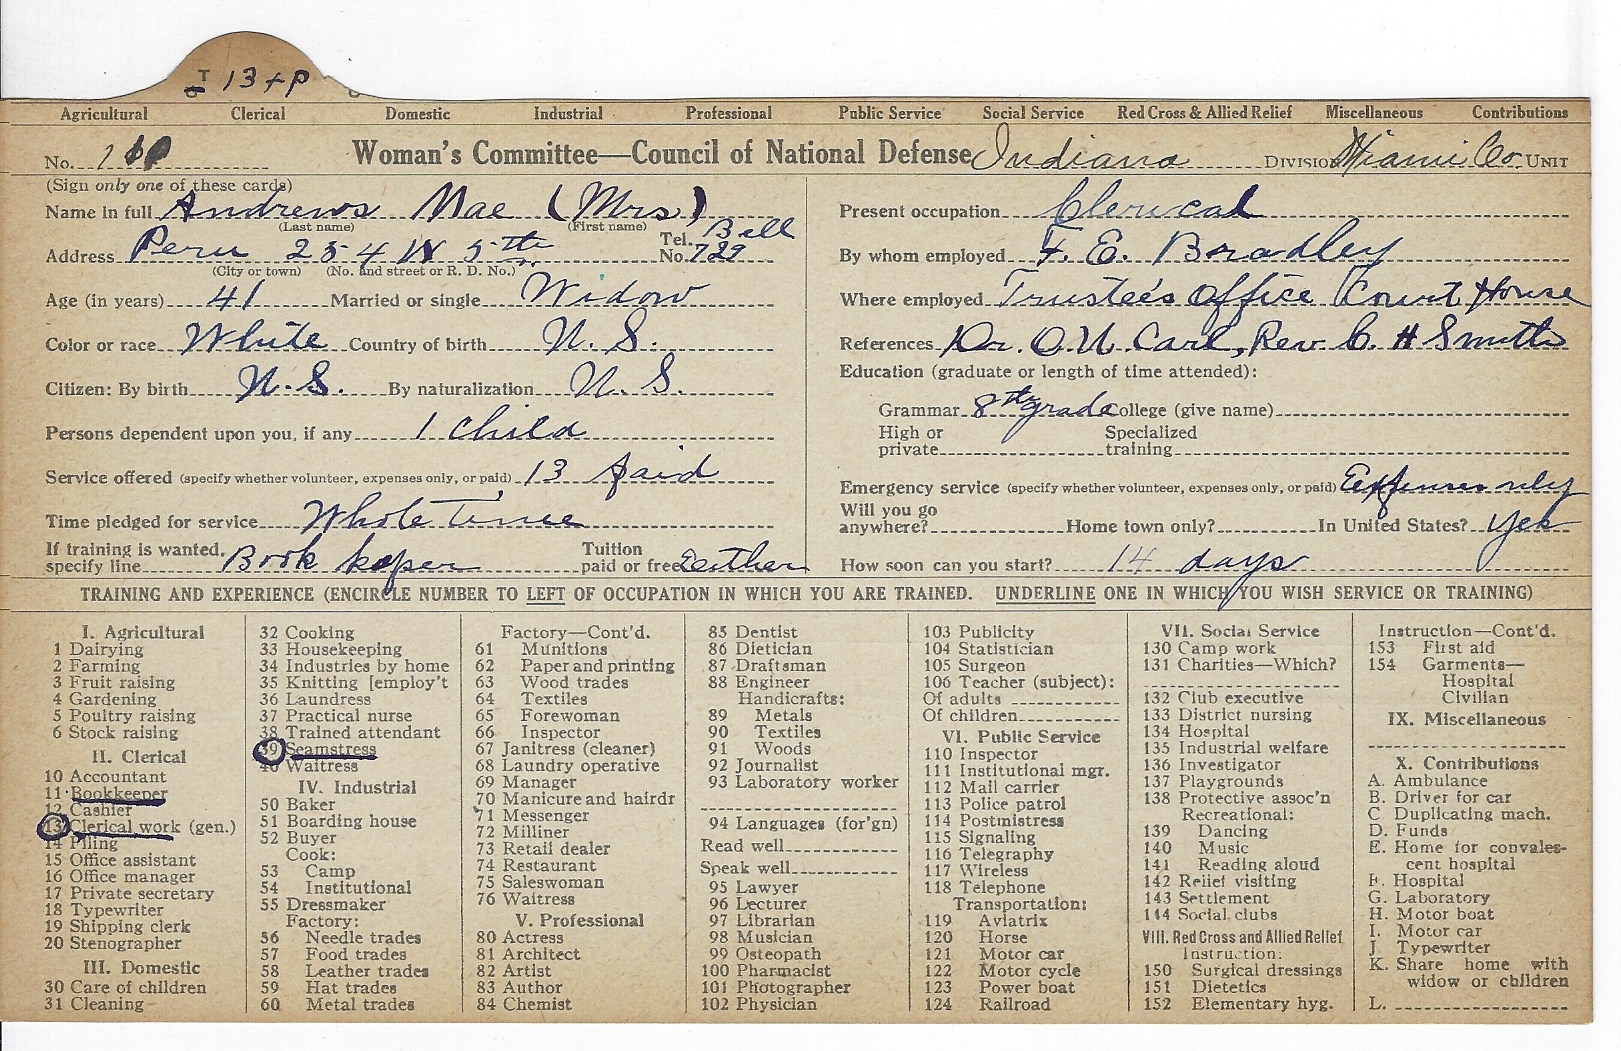 T 13 + P
Agricultural Clerical Domestic Industrial Professional Public Service Social Service Red Cross & Allied Relief Miscellaneous Contributions
No. Woman's Committee—Council of National Defense Indiana DIVISION Miami Co. UNIT
(Sign only one of these cards)
Name in full Andrews Mae (Mrs)
(Last name) (First name)
Address Peru 254 W 5th Tel. No. Bell 729
(City or town) (No. and street or R. D. No.)
Age (in years) 41 Married or single Widow
Color or race White Country of birth U. S.
Citizen: By birth U. S. By naturalization U. S.
Persons dependent upon you, if any 1 child
Service offered (specify whether volunteer, expenses only, or paid) 13 paid
Time pledged for service Whole time
If training is wanted, specify line Book keper Tuition paid or free Eeither
Present occupation Clerical
By whom employed F. E. Bradley
Where employed Trustee's Office Court House
References Dr. O. U. Carl, Rev. C. H Smith
Education (graduate or length of time attended):
Grammar 8th grade College (give name)
High or private Specialized training
Emergency service (specify whether volunteer, expenses only, or paid) Expenses only
Will you go anywhere? Home town only? In United States? Yes
How soon can you start? 14 days
TRAINING AND EXPERIENCE (ENCIRCLE NUMBER TO LEFT OF OCCUPATION IN WHICH YOU ARE TRAINED. UNDERLINE ONE IN WHICH YOU WISH SERVICE OR TRAINING)
I. Agricultural
1 Dairying
2 Farming
3 Fruit raising
4 Gardening
5 Poultry raising
6 Stock raising
II. Clerical
10 Accountant
11 Bookkeeper
12 Cashier
13 Clerical work (gen.)
14 Filing
15 Office assistant
16 Office manager
17 Private secretary
18 Typewriter
19 Shipping clerk
20 Stenographer
III. Domestic
30 Care of children
31 Cleaning
32 Cooking
33 Housekeeping
34 Industries by home
35 Knitting [employ't
36 Laundress
37 Practical nurse
38 Trained attendant
39 Seamstress
40 Waitress
IV. Industrial
50 Baker
51 Boarding house
52 Buyer
Cook:
53 Camp
54 Institutional
55 Dressmaker
Factory:
56 Needle trades
57 Food trades
58 Leather trades
59 Hat trades
60 Metal trades
Factory—Cont'd.
61 Munitions
62 Paper and printing
63 Wood trades
64 Textiles
65 Forewoman
66 Inspector
67 Janitress (cleaner)
68 Laundry operative
69 Manager
70 Manicure and hairdr
71 Messenger
72 Milliner
73 Retail dealer
74 Restaurant
75 Saleswoman
76 Waitress
V. Professional
80 Actress
81 Architect
82 Artist
83 Author
84 Chemist
85 Dentist
86 Dietician
87 Draftsman
88 Engineer
Handicrafts:
89 Metals
90 Textiles
91 Woods
92 Journalist
93 Laboratory worker
94 Languages (for'gn)
Read well
Speak well
95 Lawyer
96 Lecturer
97 Librarian
98 Musician
99 Osteopath
100 Pharmacist
101 Photographer
102 Physician
103 Publicity
104 Statistician
105 Surgeon
106 Teacher (subject):
Of adults
Of children
VI. Public Service
110 Inspector
111 Institutional mgr.
112 Mail carrier
113 Police patrol
114 Postmistress
115 Signaling
116 Telegraphy
117 Wireless
118 Telephone
Transportation:
119 Aviatrix
120 Horse
121 Motor car
122 Motor cycle
123 Power boat
124 Railroad
VII. Social Service
130 Camp work
131 Charities—Which?
132 Club executive
133 District nursing
134 Hospital
135 Industrial welfare
136 Investigator
137 Playgrounds
138 Protective assoc'n
Recreational:
139 Dancing
140 Music
141 Reading aloud
142 Relief visiting
143 Settlement
144 Social clubs
VIII. Red Cross and Allied Relief
Instruction:
150 Surgical dressings
151 Dietetics
152 Elementary hyg.
Instruction—Cont'd.
153 First aid
154 Garments—
Hospital
Civilian
IX. Miscellaneous
X. Contributions
A. Ambulance
B. Driver for car
C. Duplicating mach.
D. Funds
E. Home for convales-
cent hospital
F. Hospital
G. Laboratory
H. Motor boat
I. Motor car
J. Typewriter
K. Share home with
widow or children
L.